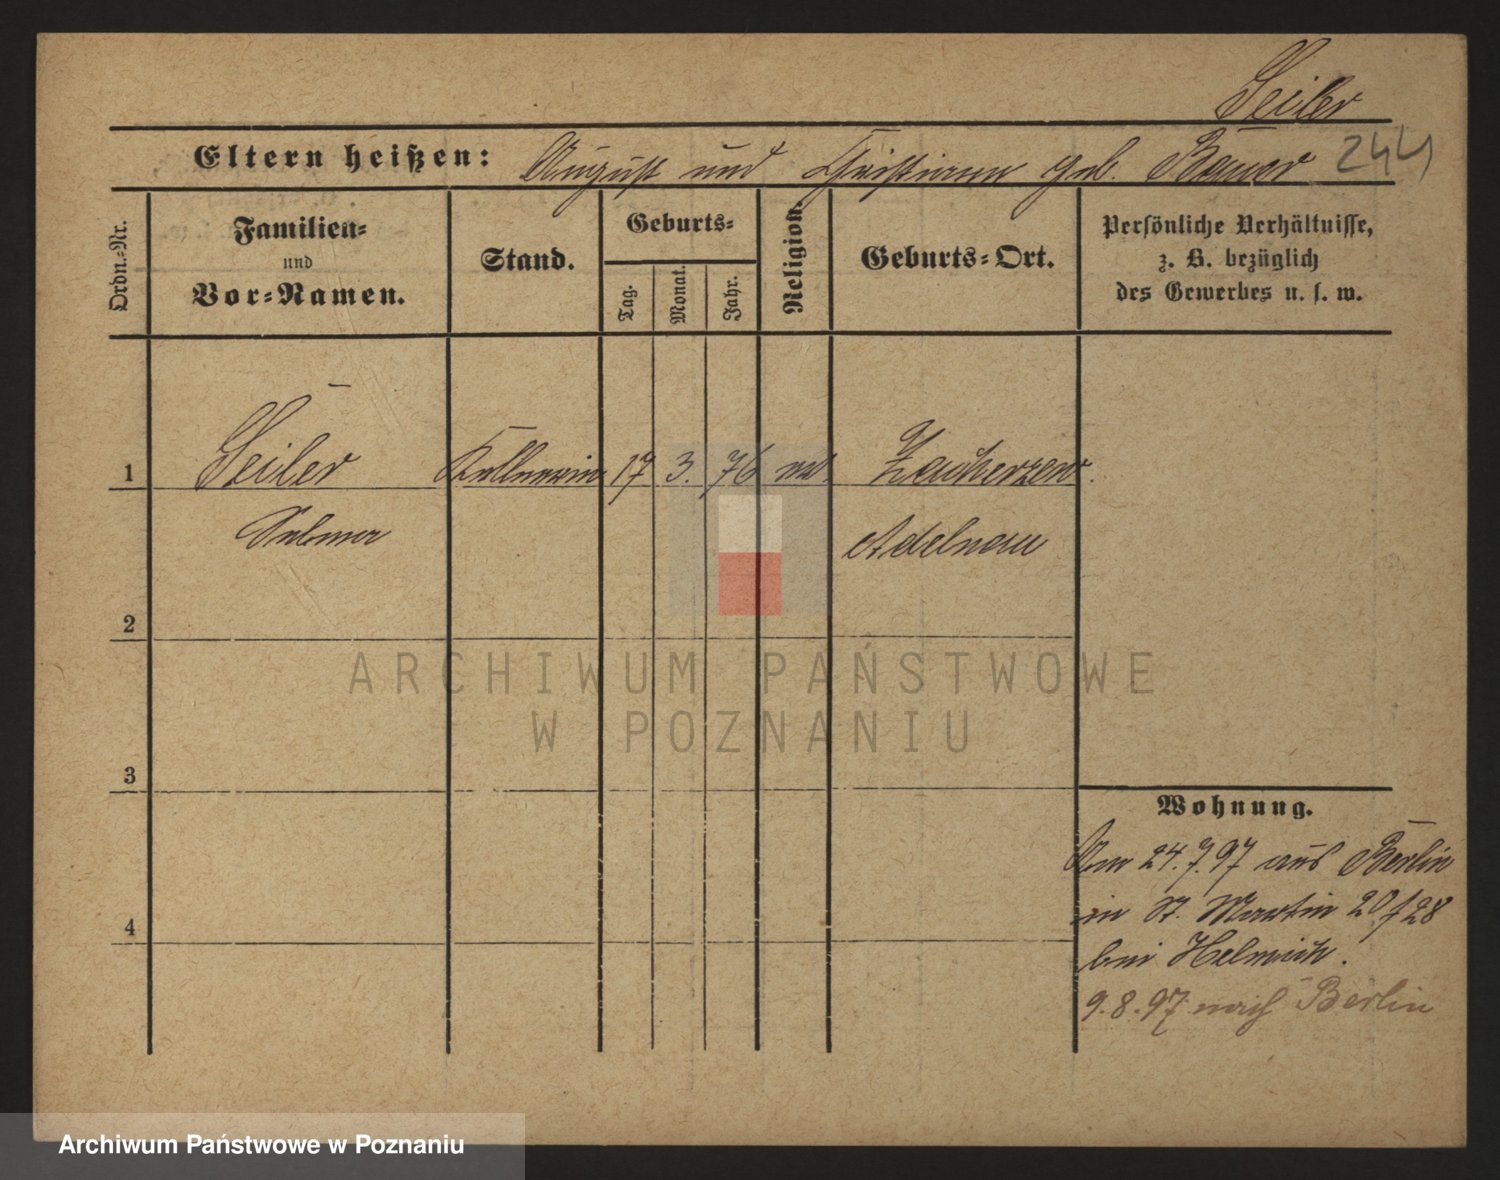 Seiler
Eltern heißen: August und Christiane geb. Bauer 244
Ordn.-Nr.
Familien-
und
Vor-Namen.
Stand.
Geburts-
Tag.
Monat.
Jahr.
Religion.
Geburts-Ort.
Persönliche Verhältnisse,
z. B. bezüglich
des Gewerbes u. s. w.
1 Seiler Kellnerin 17 3. 76
Adelnau
2
3
4
Wohnung.
Am 24.7.97 aus Berlin
in St. Martin 20/28
bei Helmich.
9.8.97 nach Berlin
ARCHIWUM PAŃSTWOWE
W POZNANIU
Archiwum Państwowe w Poznaniu